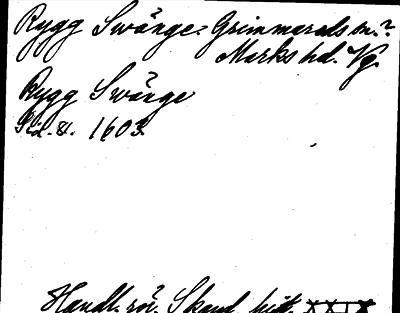 Rygg Swänge. Grimmareds sn.?
Marks hd. Vg.
Rygg Swänge
1603.
Handl. rör. Skand. hist. XXIX